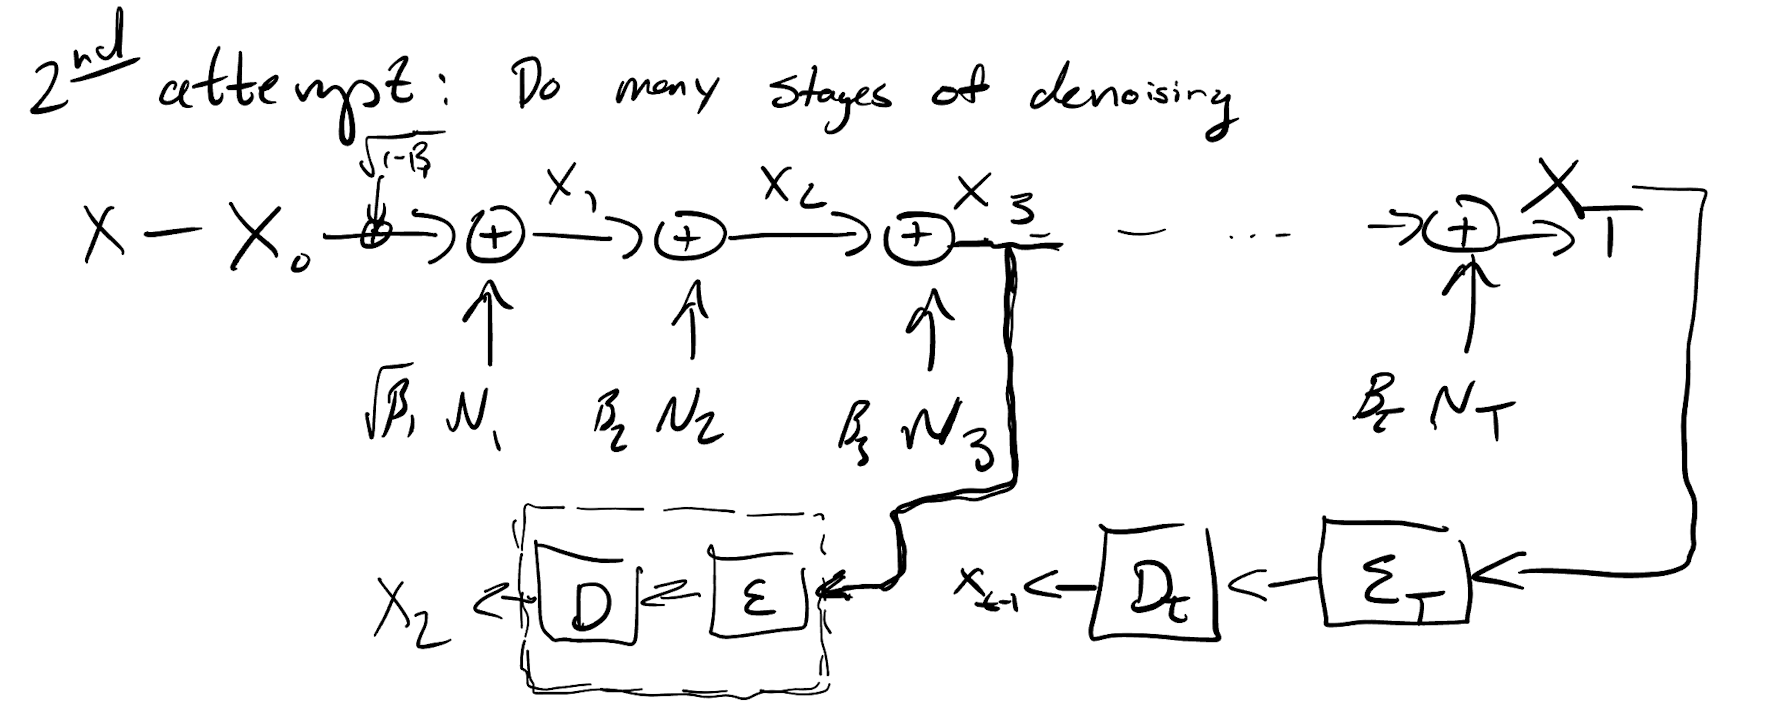 2nd attempt: Do many stages of denoising
√1-β₁
X — X₀ X₁ X₂ X₃ - ... - X_T
√β₁ N₁ β₂ N₂ β₃ N₃ β_t N_T
X₂ D ε X_{t-1} D_t ε_T